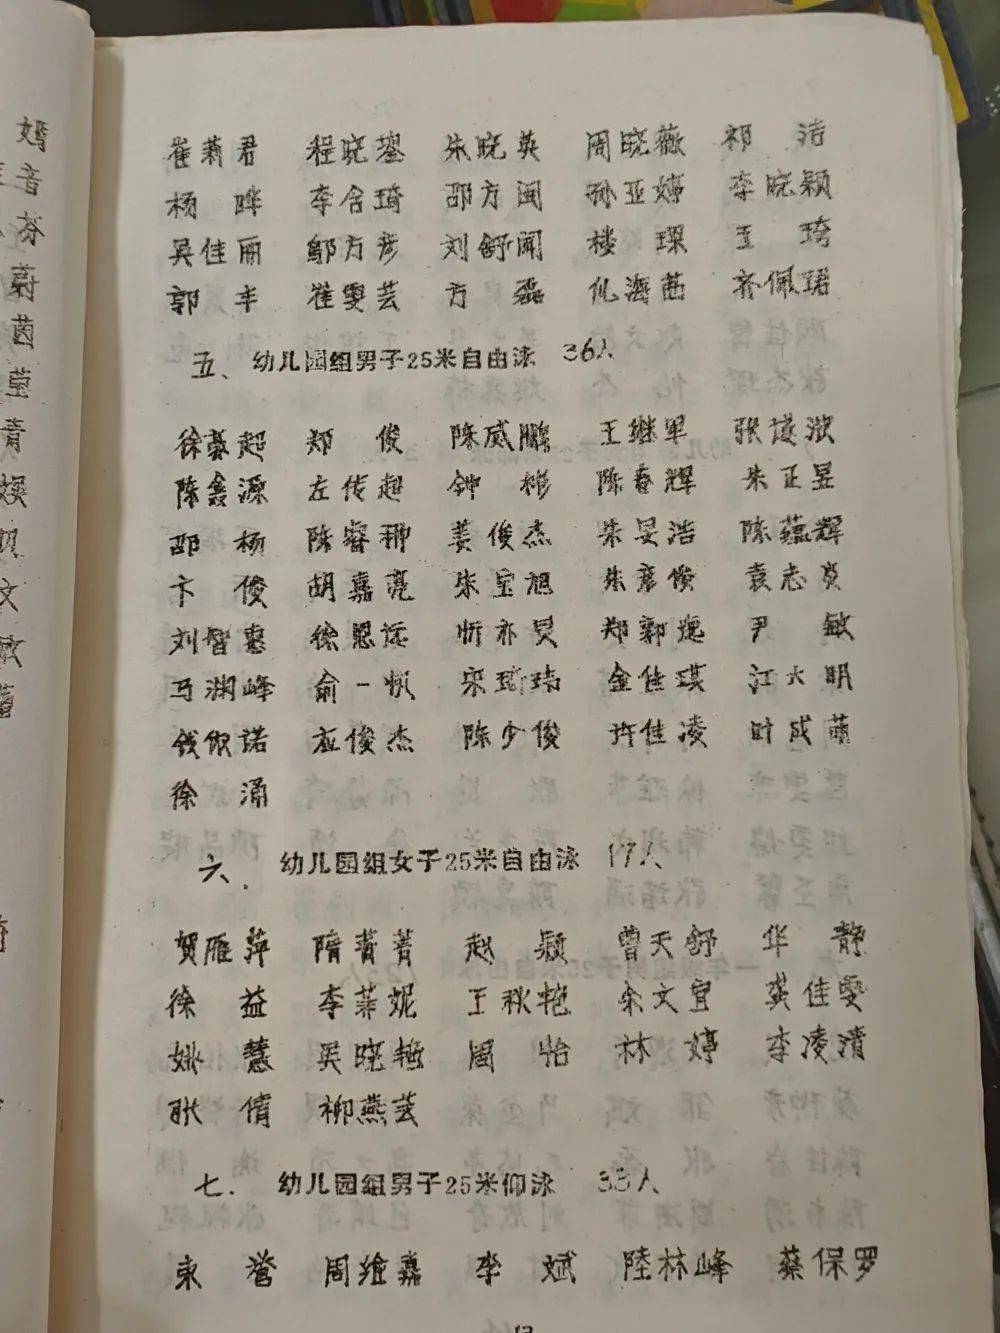 崔莉君 程晓鋆 朱晓英 周晓薇 祁洁
杨晔 李含琦 邵方闽 孙亚婷 李晓颖
吴佳丽 邬方彦 刘舒闻 楼琛 王琦
郭丰 崔雯芸 方磊 仇海茜 齐佩珺
五、幼儿园组男子25米自由泳 36人
徐慕超 郑俊 陈威鹏 王继军 张
陈鑫源 左传超 钟彬 陈春辉 朱正昱
邵杨 陈睿翀 姜俊杰 朱旻浩 陈蕴辉
卞俊 胡嘉亮 朱宝旭 朱彦俊 袁志
刘智惠 徐恩远 忻亦昊 郑郭 尹敏
马渊峰 俞一帆 宋琦玮 金佳琪 江大明
钱 诺 应俊杰 陈少俊 许佳凌 时成萌
徐涌
六、幼儿园组女子25米自由泳 17人
贺雁萍 隋菁菁 赵颖 曾天舒 华静
徐益 李菲妮 王秋艳 余文宜 龚佳雯
姚慧 吴晓艳 周怡 林婷 李凌清
张倩 柳燕芸
七、幼儿园组男子25米仰泳 33人
束誉 周维嘉 李斌 陸林峰 蔡保罗
婿
音
芬
蔚
茵
莹
青
文
敏